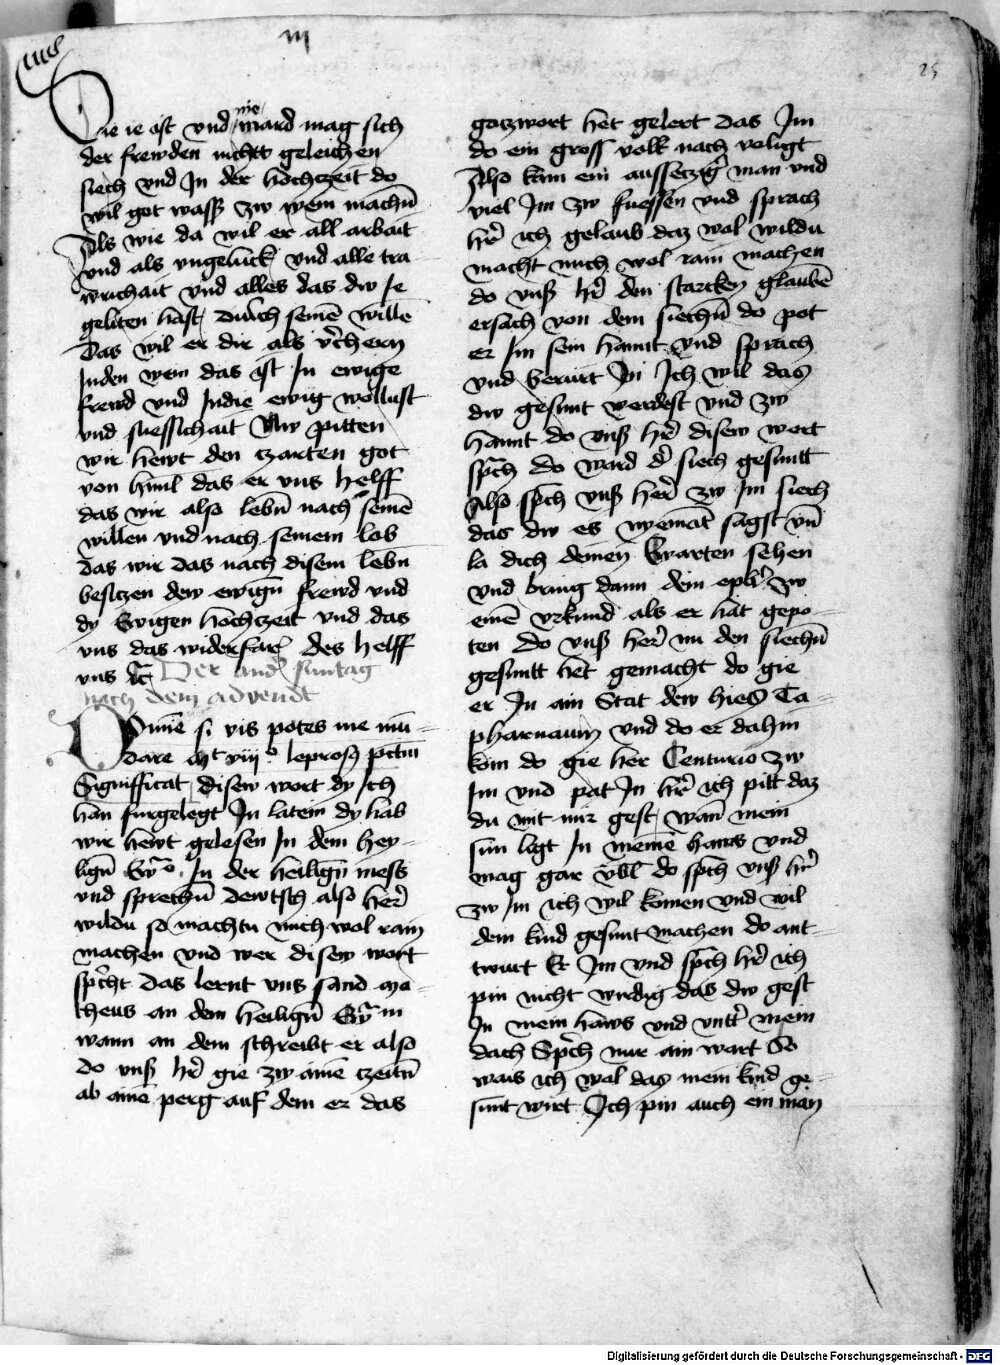 iii
25
Die ie ist vnd niemard mag sich
der frewden nichtz geleichen
siech vnd In der hochczeit do
wil got wasß zw wein machn̄
Als wie da wil er all arbait
vnd als vngelück vnd alle tra
wrichait vnd alles das dw ye
geliten hast durch seinē willē
Das wil er dir als v̄chern
Inden wein das ist In ewige
frewd vnd Indie ewig wollust
vnd suessichait Nw pitten
wir hewt den czarten got
von himl das er vns helff
das wir also lebn̄ nach seinē
willen vnd nach seinem lob
das wir das nach disem lebn̄
besitzen dew ewign̄ frewd vnd
dy Ewigen hochczeit vnd das
vns das widerfar̄ des helff
vns ꝛc̄ Der and' suntag
nach dem advendt
Domīe si vis potes me mū=
dare Mt viijo leprosꝫ pctm̄
Signifficat disew wort dy ich
han furgelegt In latein dy hab
wir hewt gelesen In dem hey=
lign̄ Ew̄o In der heilign̄ mess
vnd sprechn̄ dewtsch also her̄
wildu so machtu mich wol rain
machen vnd wer disew wort
sp̄cht das lernt vns sand Ma=
theus an dem heilign̄ Ew̄m
wann an dem schreibt er also
do vnß hr̄ gie zw ainē czeitn̄
ab ainē perg auf dem er das
gotzwort het gelert das Im
do ein gross volk nach voligt
Also kam ein aussetzig' man vnd
viel Im zw fuessen vnd sprach
hr̄ ich gelaub daz wol wildu
macht mich wol rain machen
do vnß hr̄ den starcken glaubē
ersach von dem siechn̄ do pot
er Im sein hannt vnd sprach
vnd berürt In Ich wil das
dw gesunt werdest vnd zw
hannt do vnß hr̄ disew wort
sp̄ch do ward d' siech gesuntt
Also sp̄ch vnß her̄ zw Im siech
das dw es nyemāt sagst vn̄
la dich deinen Ewarten sehen
vnd bring dann dein oph' zw
einē vrkund als er hat gepo=
ten Do vnß her̄ nu den siechn̄
gesuntt het gemacht do gie
er In ain Stat dew hies Ca=
pharnaum vnd do er dahin
kom do gie her Centurio zw
Im vnd pat In hr̄ ich pitt daz
du mit mir gest wan̄ mein
sun ligt In meinē haws vnd
mag gar vbl do sp̄ch vnß hr̄
zw Im ich wil komen vnd wil
dein kind gesunt machen do ant=
twurt Er Im vnd sp̄ch hr̄ ich
pin nicht wirdig das dw gest
In mein haws vnd vntt' mein
dach Sp̄ch nur ain wart So
wais ich wol das mein kind ge=
sunt wirt Ich pin auch ein man
Digitalisierung gefördert durch die Deutsche Forschungsgemeinschaft - DFG